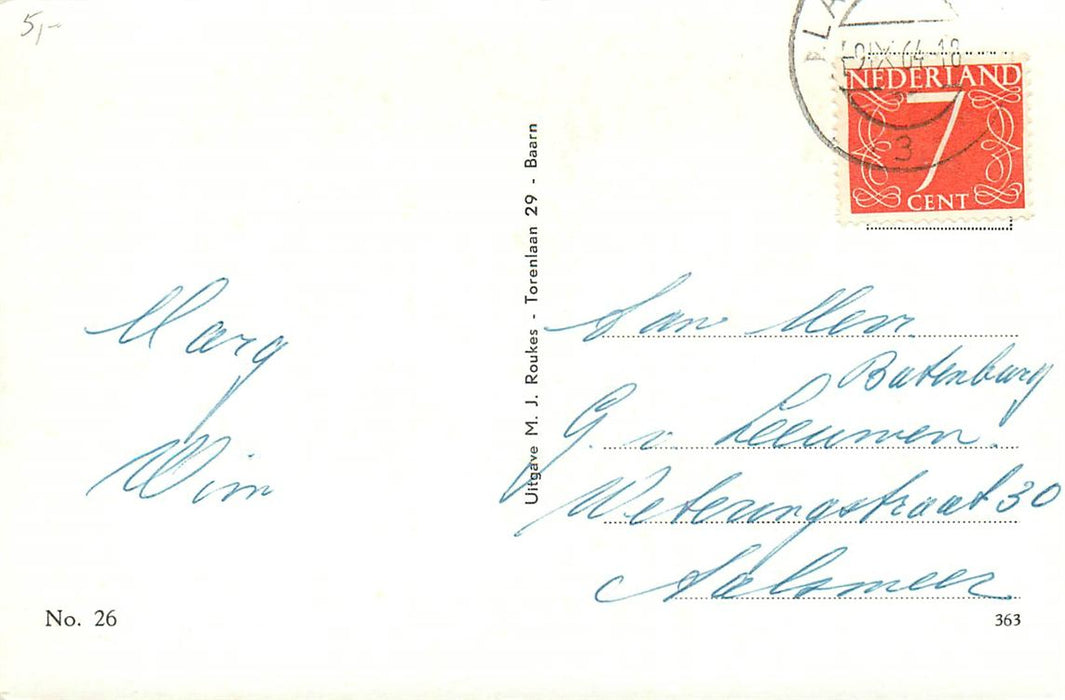 5,-
PLA
-9IX64-18
3
NEDERLAND
7
CENT
Uitgave M. J. Roukes - Torenlaan 29 - Baarn
Marg
Wim
Aan Mevr.
Batenburg
G. v. Leeuwen.
Weteringstraat 30
Aalsmeer
No. 26
363